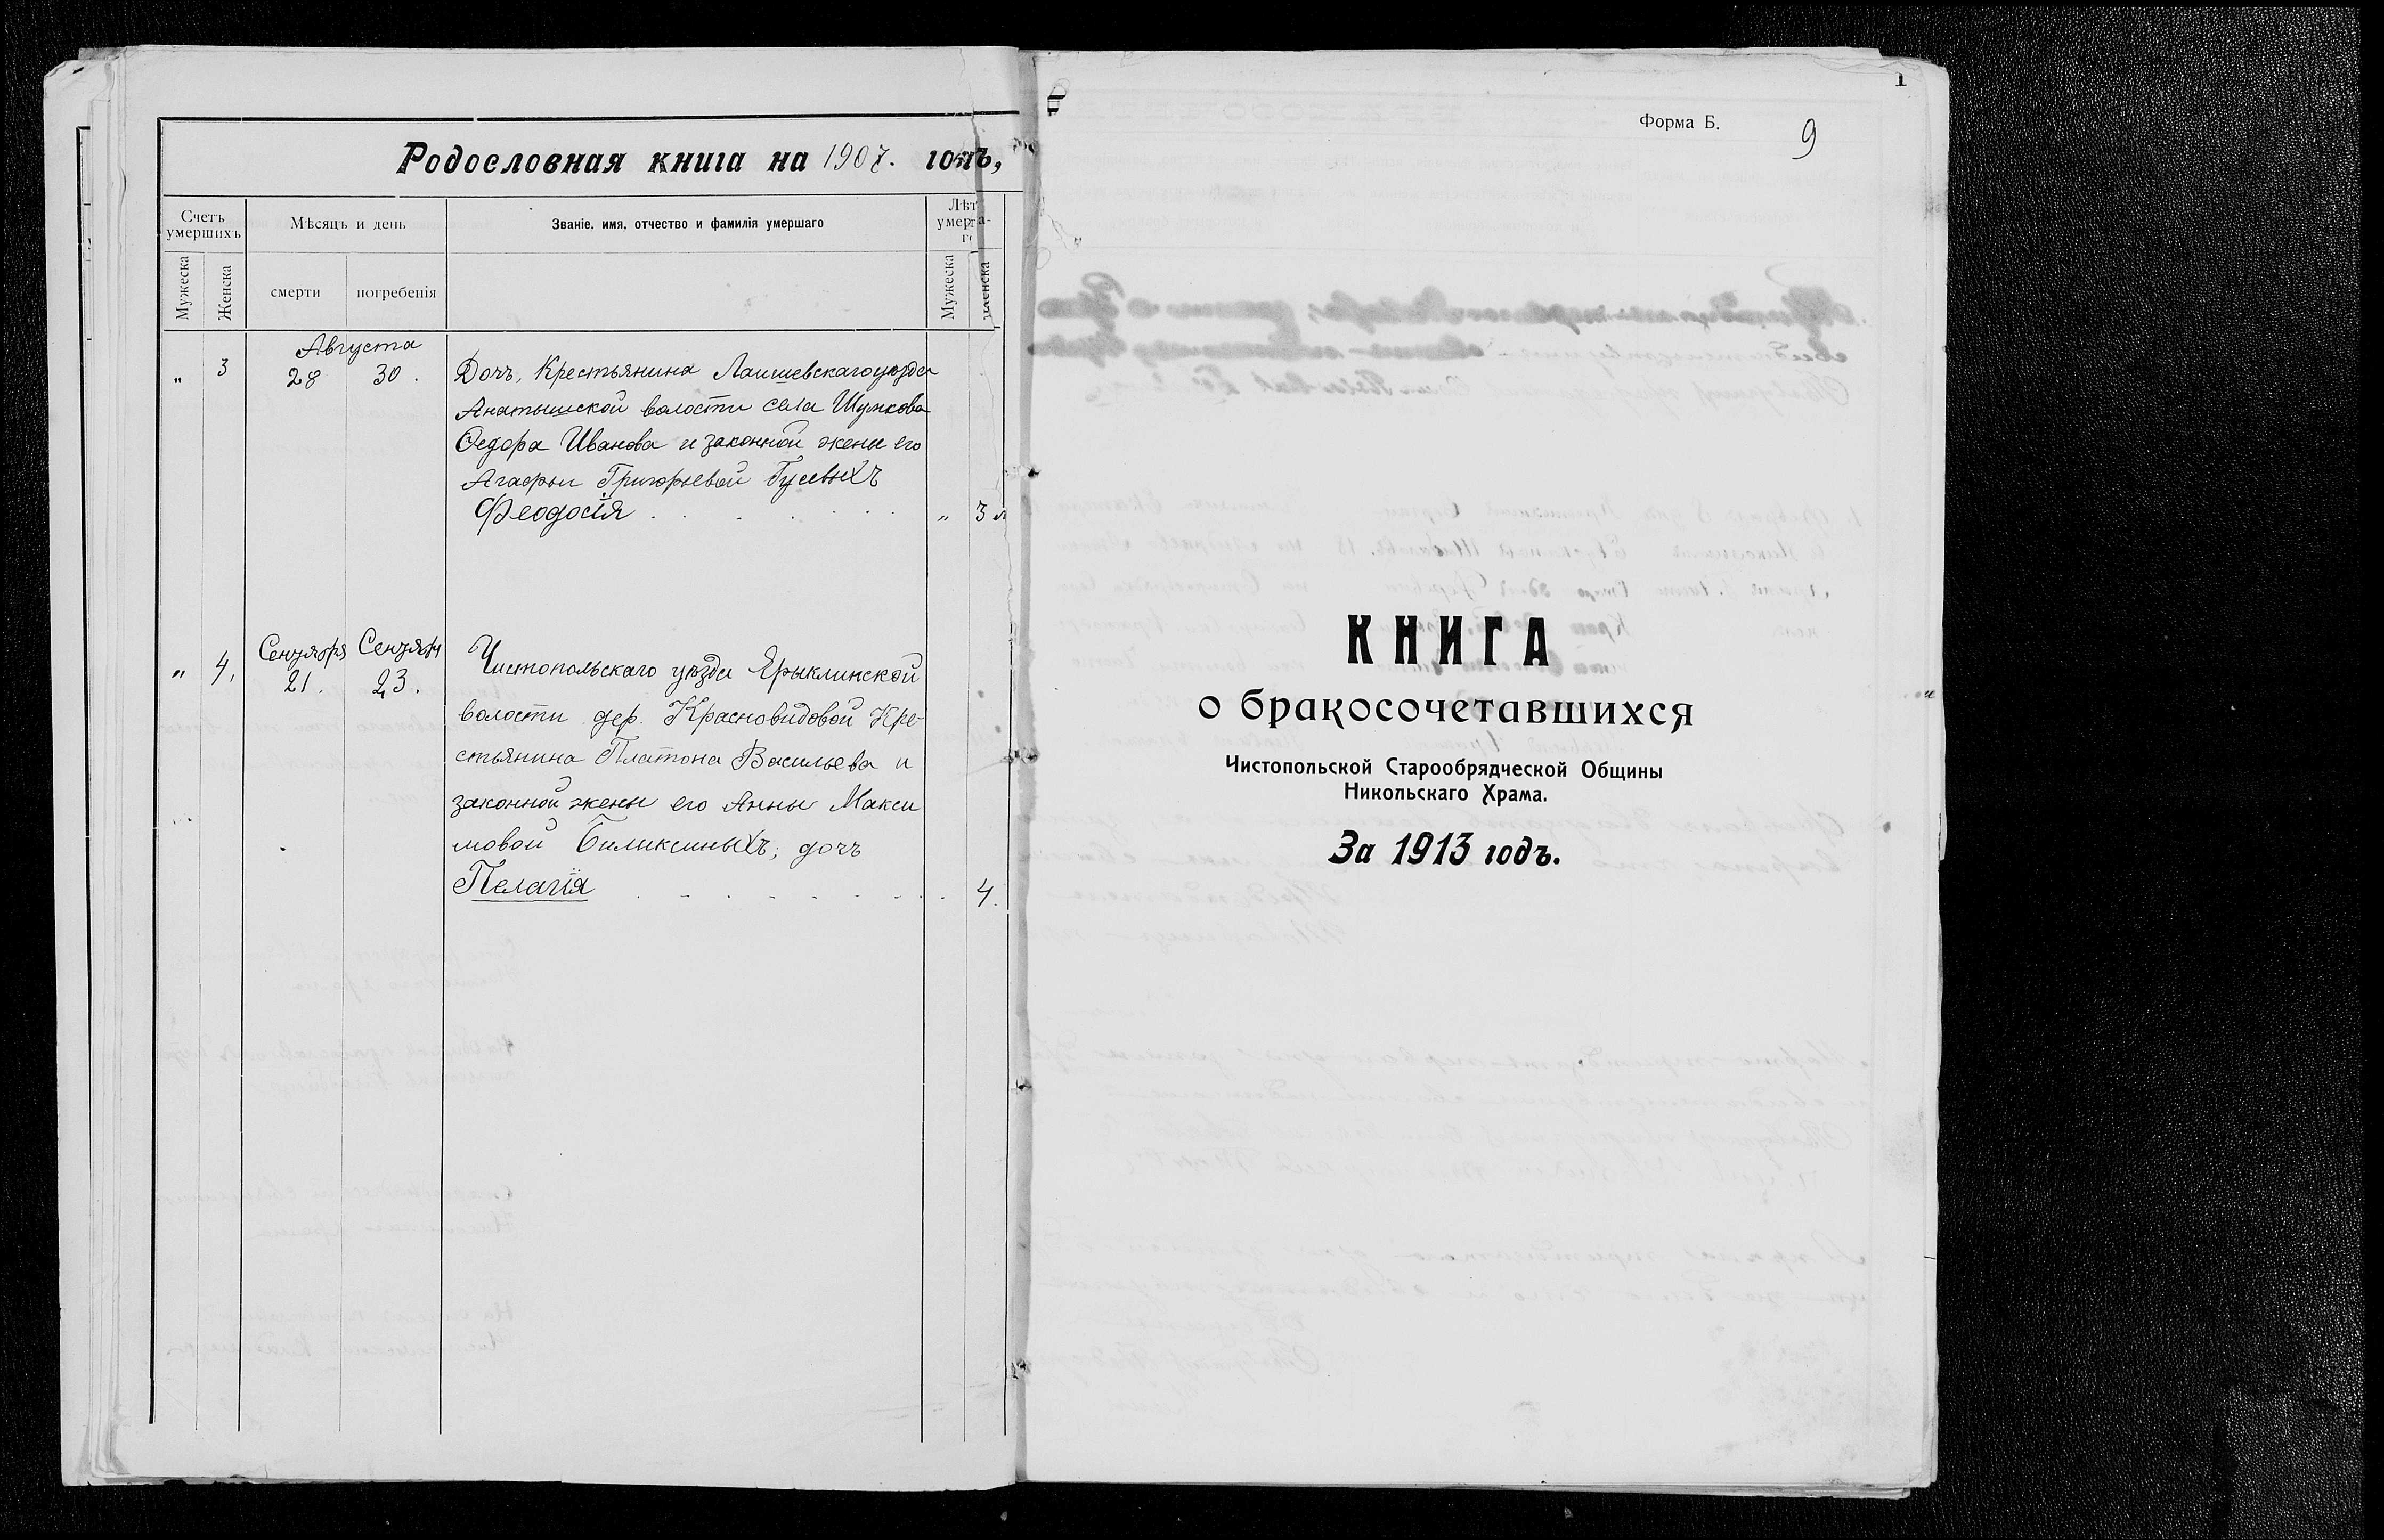 Родословная книга на 1907. годъ,
Счетъ умершихъ
Мѣсяцъ и день
Званіе, имя, отчество и фамилія умершаго
Лѣт умерша-го
Мужеска
Женска
смерти
погребенія
Мужеска
Женска
Августа
" 3 28 30.
Дочь, Крестьянина Лаишевскаго уѣзда
Анатышской волости села Шуркова
Ѳедора Иванова и законной жены его
Агафьи Григорьевой Гусевыхъ
Феодосія . . . . . . " 3 л
Сентября Сентяб
" 4, 21. 23.
Чистопольскаго уѣзда Ерыклинской
волости дер. Красновидовой Кре-
стьянина Платона Васильева и
законной жены его Анны Макси
мовой Биликсиныхъ, дочь
Пелагія . . . . . . . . 4.
1
Форма Б.
9
КНИГА
о бракосочетавшихся
Чистопольской Старообрядческой Общины
Никольскаго Храма.
За 1913 годъ.